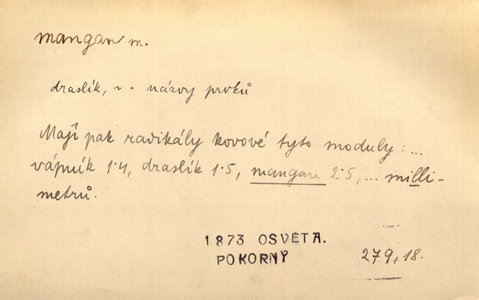 mangan m.
draslík, ~ názvy prvků
Mají pak radikály kovové tyto moduly: ...
vápník 1·4, draslík 1·5, mangan 2·5, ... milli-
metrů.
1873 OSVĚTA.
POKORNÝ
279, 18.